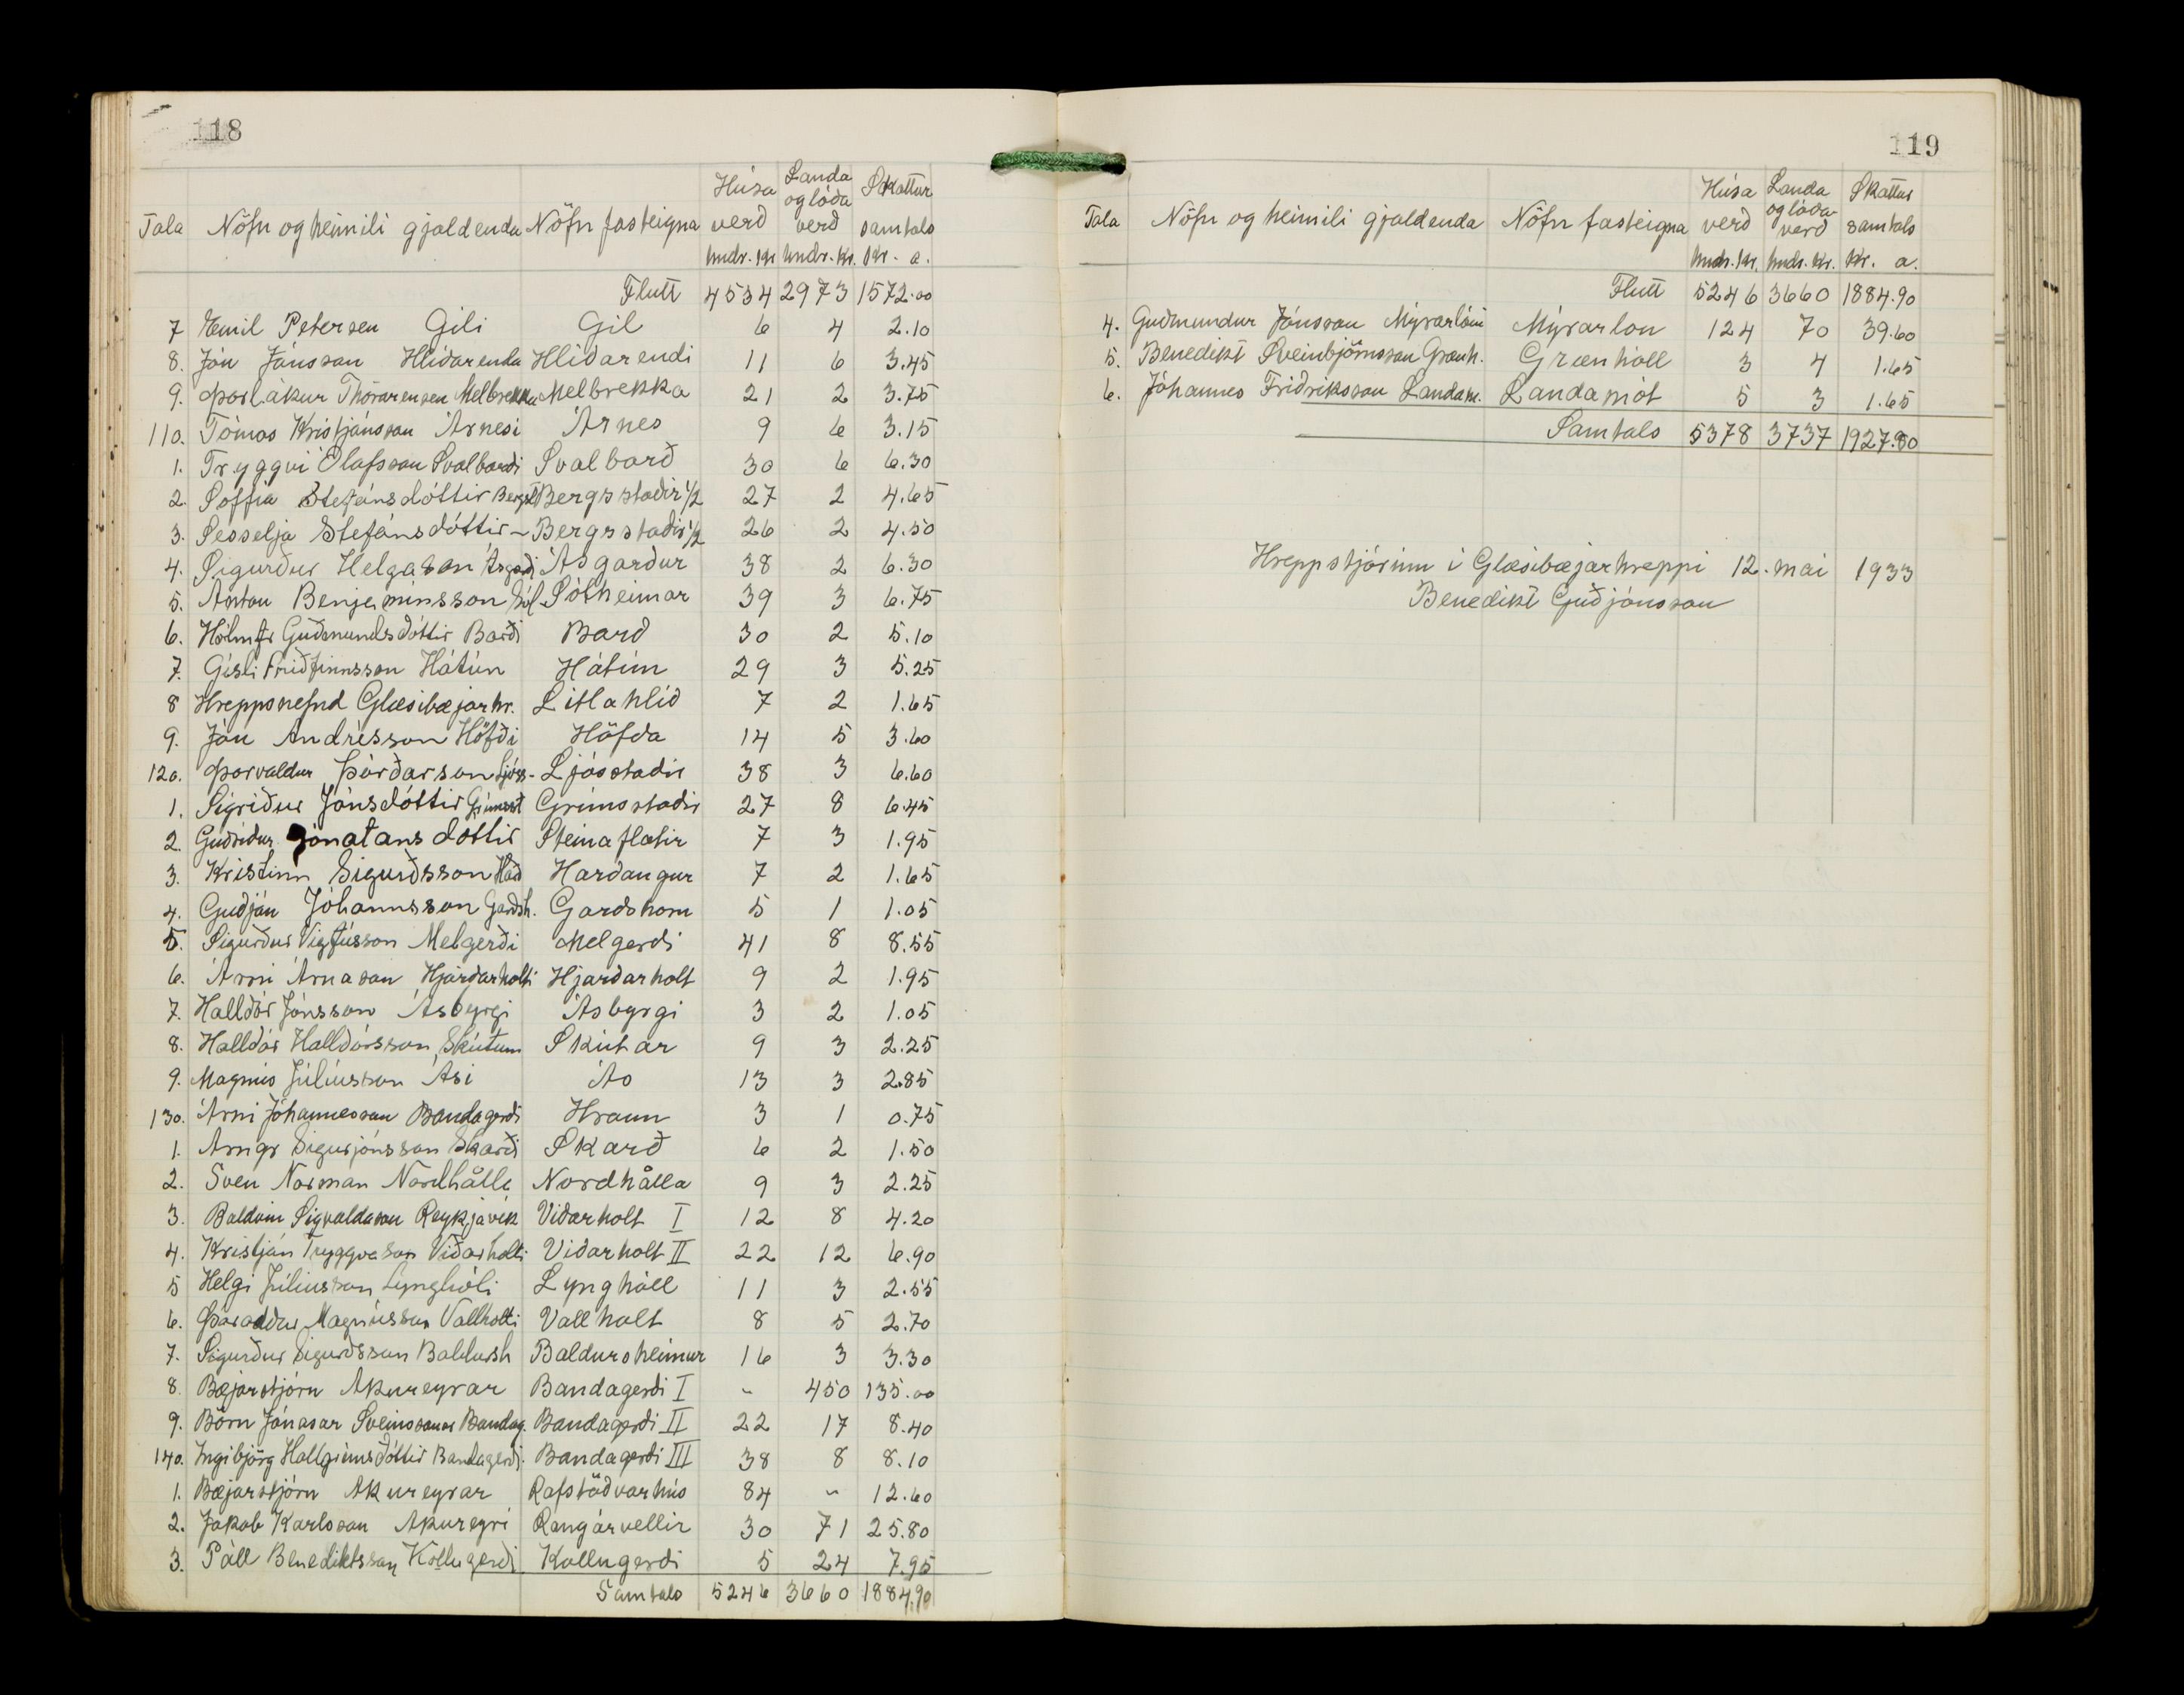 118
Tala Nöfn og heimili gjaldenda Nöfn fasteigna Húsa verd hndr. kr Landa og lóda verd hndr. kr. Skattur samtals kr. a.
Flutt 4534 2973 1572.00
7 Emil Petersen Gili Gil 6 4 2.10
8. Jón Jónsson Hlidarenda Hlidarendi 11 6 3.45
9. Þorlákur Thórarensen Melbrekku Melbrekka 21 2 3.75
110. Tómas Kristjánsson Árnesi Árnes 9 6 3.15
1. Tryggvi Ólafsson Svalbardi Svalbarð 30 6 6.30
2. Soffía Stefánsdóttir Bergst Bergsstadir 1/2 27 2 4.65
3. Sesselja Stefánsdóttir ~ Bergsstadir 1/2 26 2 4.50
4. Sigurður Helgason Ásgardi Ásgardur 38 2 6.30
5. Anton Benjamínsson Sól Sólheimar 39 3 6.75
6. Hólmfr Guðmundsdóttir Barði Bard 30 2 5.10
7. Gísli Friðfinnsson Hátún Hátún 29 3 5.25
8 Hreppsnefnd Glæsibæjarhr. Litlahlid 7 2 1.65
9. Jón Andrésson Höfði Höfda 14 5 3.60
120. Þorvaldur Þórðarson Ljóss- Ljósstadir 38 3 6.60
1. Sigríður Jónsdóttir Grímsst Grímsstadir 27 8 6.45
2. Gudridur Jónatansdóttir Steinaflatir 7 3 1.95
3. Kristinn Sigurðsson Had Hardangur 7 2 1.65
4. Gudjón Jóhannsson Gardsh. Gardshorn 5 1 1.05
5. Sigurður Vigfússon Melgerði Melgerdi 41 8 8.55
6. Árni Árnason Hjarðarholti Hjardarholt 9 2 1.95
7. Halldór Jónsson Ásbyrgi Ásbyrgi 3 2 1.05
8. Halldór Halldórsson Skútum Skútar 9 3 2.25
9. Magnús Júlíusson Ási Ás 13 3 2.85
130. Árni Jóhannesson Bandagerdi Hraun 3 1 0.75
1. Arngr Sigurjónsson Skarði Skarð 6 2 1.50
2. Sven Norman Nordhålla Nordhålla 9 3 2.25
3. Baldvin Sigvaldason Reykjavík Vidarholt I 12 8 4.20
4. Kristján Tryggvason Viðarholti Vidarholt II 22 12 6.90
5 Helgi Júlíusson Lynghóli Lynghóll 11 3 2.55
6. Þóroddur Magnússon Vallholti Vallholt 8 5 2.70
7. Sigurður Sigurðsson Baldursh Baldursheimur 16 3 3.30
8. Bæjarstjórn Akureyrar Bandagerdi I ~ 450 135.00
9. Börn Jónasar Sveinssonar Bandag. Bandagerdi II 22 17 8.40
140. Ingibjörg Hallgrímsdóttir Bandagerdi. Bandagerdi III 38 8 8.10
1. Bæjarstjórn Akureyrar Rafstödvarhús 84 ~ 12.60
2. Jakob Karlsson Akureyri Rangárvellir 30 71 25.80
3. Páll Benediktsson Kollugerði Kollugerdi 5 24 7.95
Samtals 5246 3660 1884.90
119
Tala Nöfn og heimili gjaldenda Nöfn fasteigna Húsa verd hndr. kr. Landa og lóda- verd hndr. kr. Skattur samtals kr. a.
Flutt 5246 3660 1884.90
4. Guðmundur Jónsson Mýrarlóni Mýrarlon 124 70 39.60
5. Benedikt Sveinbjörnsson Grænh. Grænhóll 3 4 1.65
6. Jóhannes Friðriksson Landam. Landamót 5 3 1.65
Samtals 5378 3737 1927.80
Hreppstjórinn i Glæsibæjarhreppi 12. mai 1933
Benedikt Guðjónsson